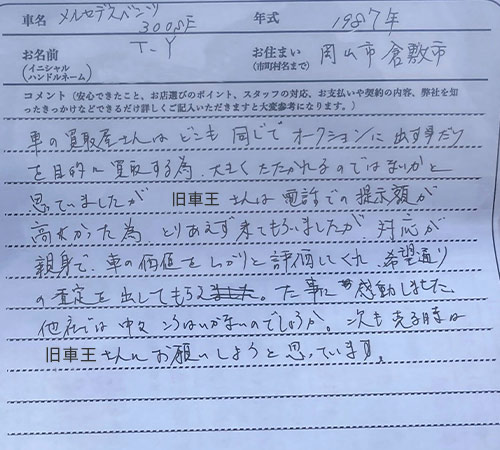 車名 メルセデスベンツ 300SE 年式 1987年
お名前 T-Y お住まい 岡山市倉敷市
(イニシャル ハンドルネーム) (市町村名まで)
コメント(安心できたこと、お店選びのポイント、スタッフの対応、お支払いや契約の内容、弊社を知
ったきっかけなどできるだけ詳しくご記入いただきますと大変参考になります。)
車の買取屋さんは どこも 同じで オークションに 出す事だけ
を目的に 買取する為、大きく たたかれるのではないかと
思っていましたが 旧車王 さんは 電話での提示額が
高かった為 とりあえず来てもらいましたが 対応が
親身で、車の価値を しっかりと評価してくれ、希望通り
の査定を出してもらえました。た事に 感動しました。
他社では 中々 こうはいかないのでしょうか。次も売る時は
旧車王 さんにお願いしようと思っています。